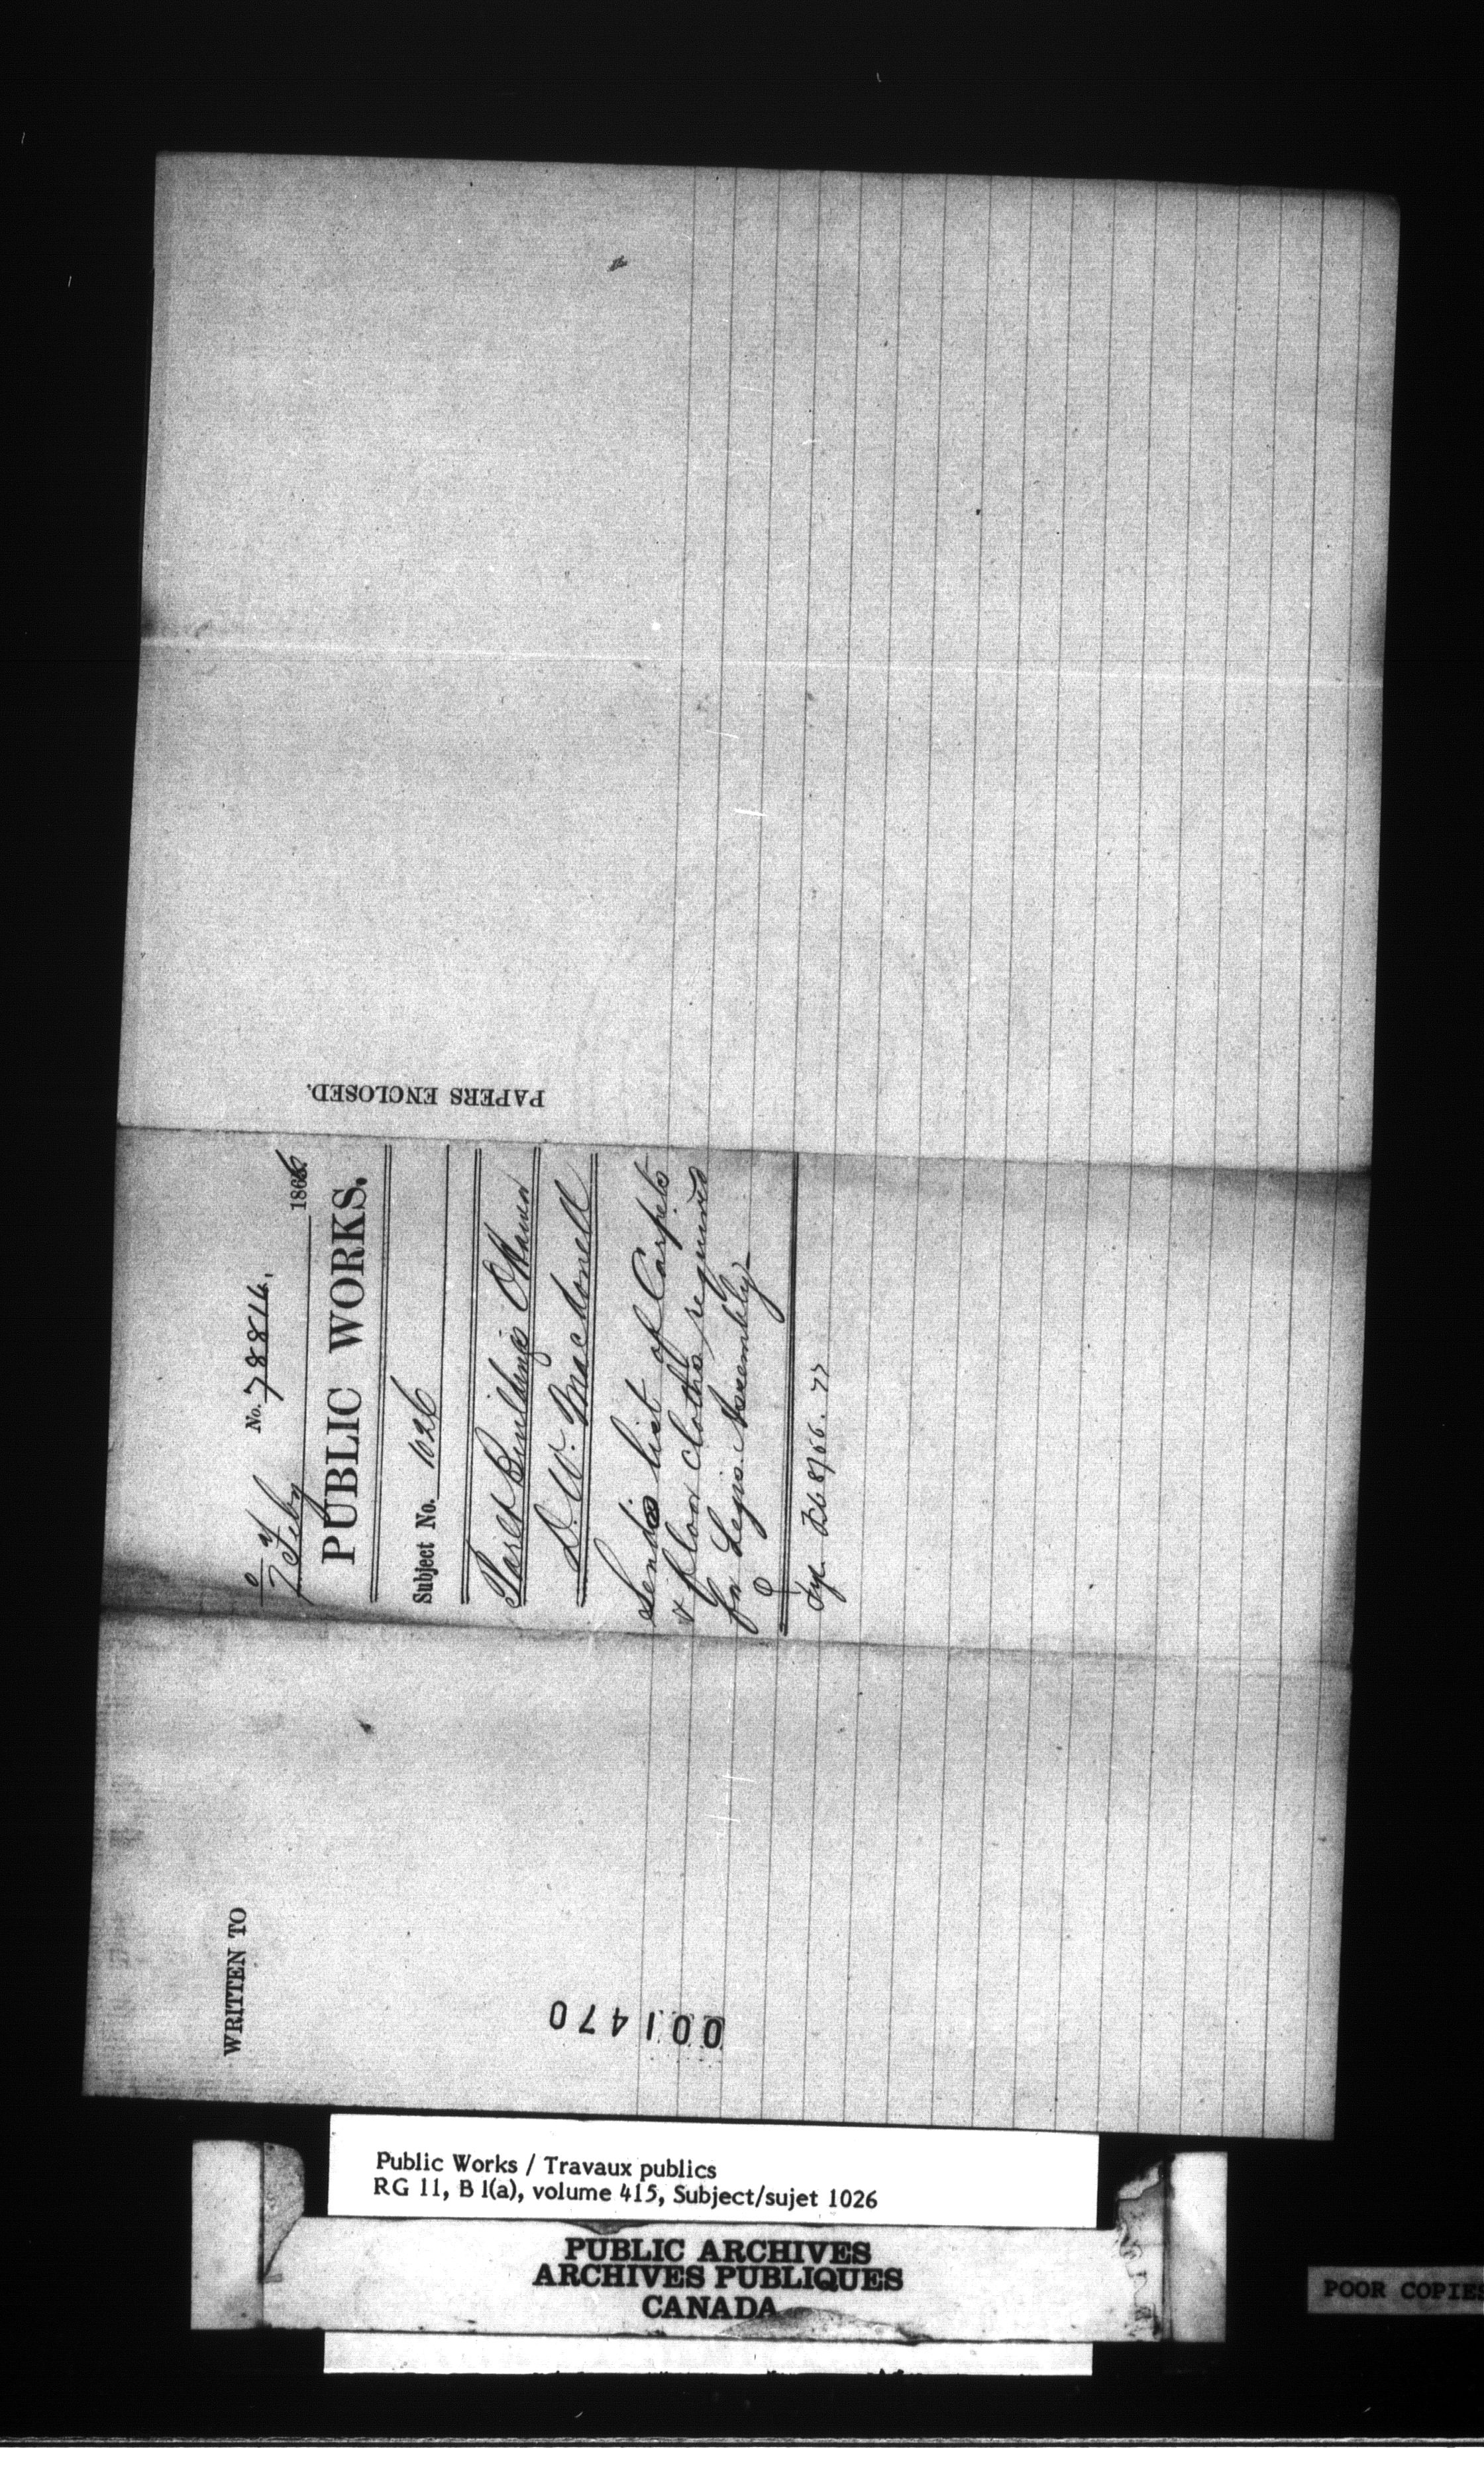 WRITTEN TO
No. 78814.
7 Feby 1866
PUBLIC WORKS.
Subject No. 1026
Parlt Buildings Ottawa
D. W. Macdonell
Sends list of Carpets
& floor cloths required
for Legis. Assembly
PAPERS ENCLOSED.
001470
Public Works / Travaux publics
RG 11, B 1(a), volume 415, Subject/sujet 1026
PUBLIC ARCHIVES
ARCHIVES PUBLIQUES
CANADA
POOR COPIES